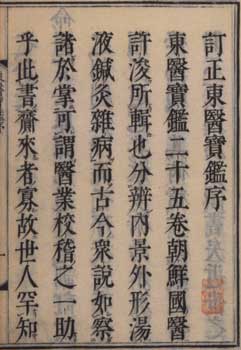 訂正東醫寶鑑序
東醫寶鑑二十五卷朝鮮國醫
許浚所輯也分辨內景外形湯
液鍼灸雜病而古今衆說如察
諸於掌可謂醫業校稽之一助
乎此書齎來者寡故世人罕知